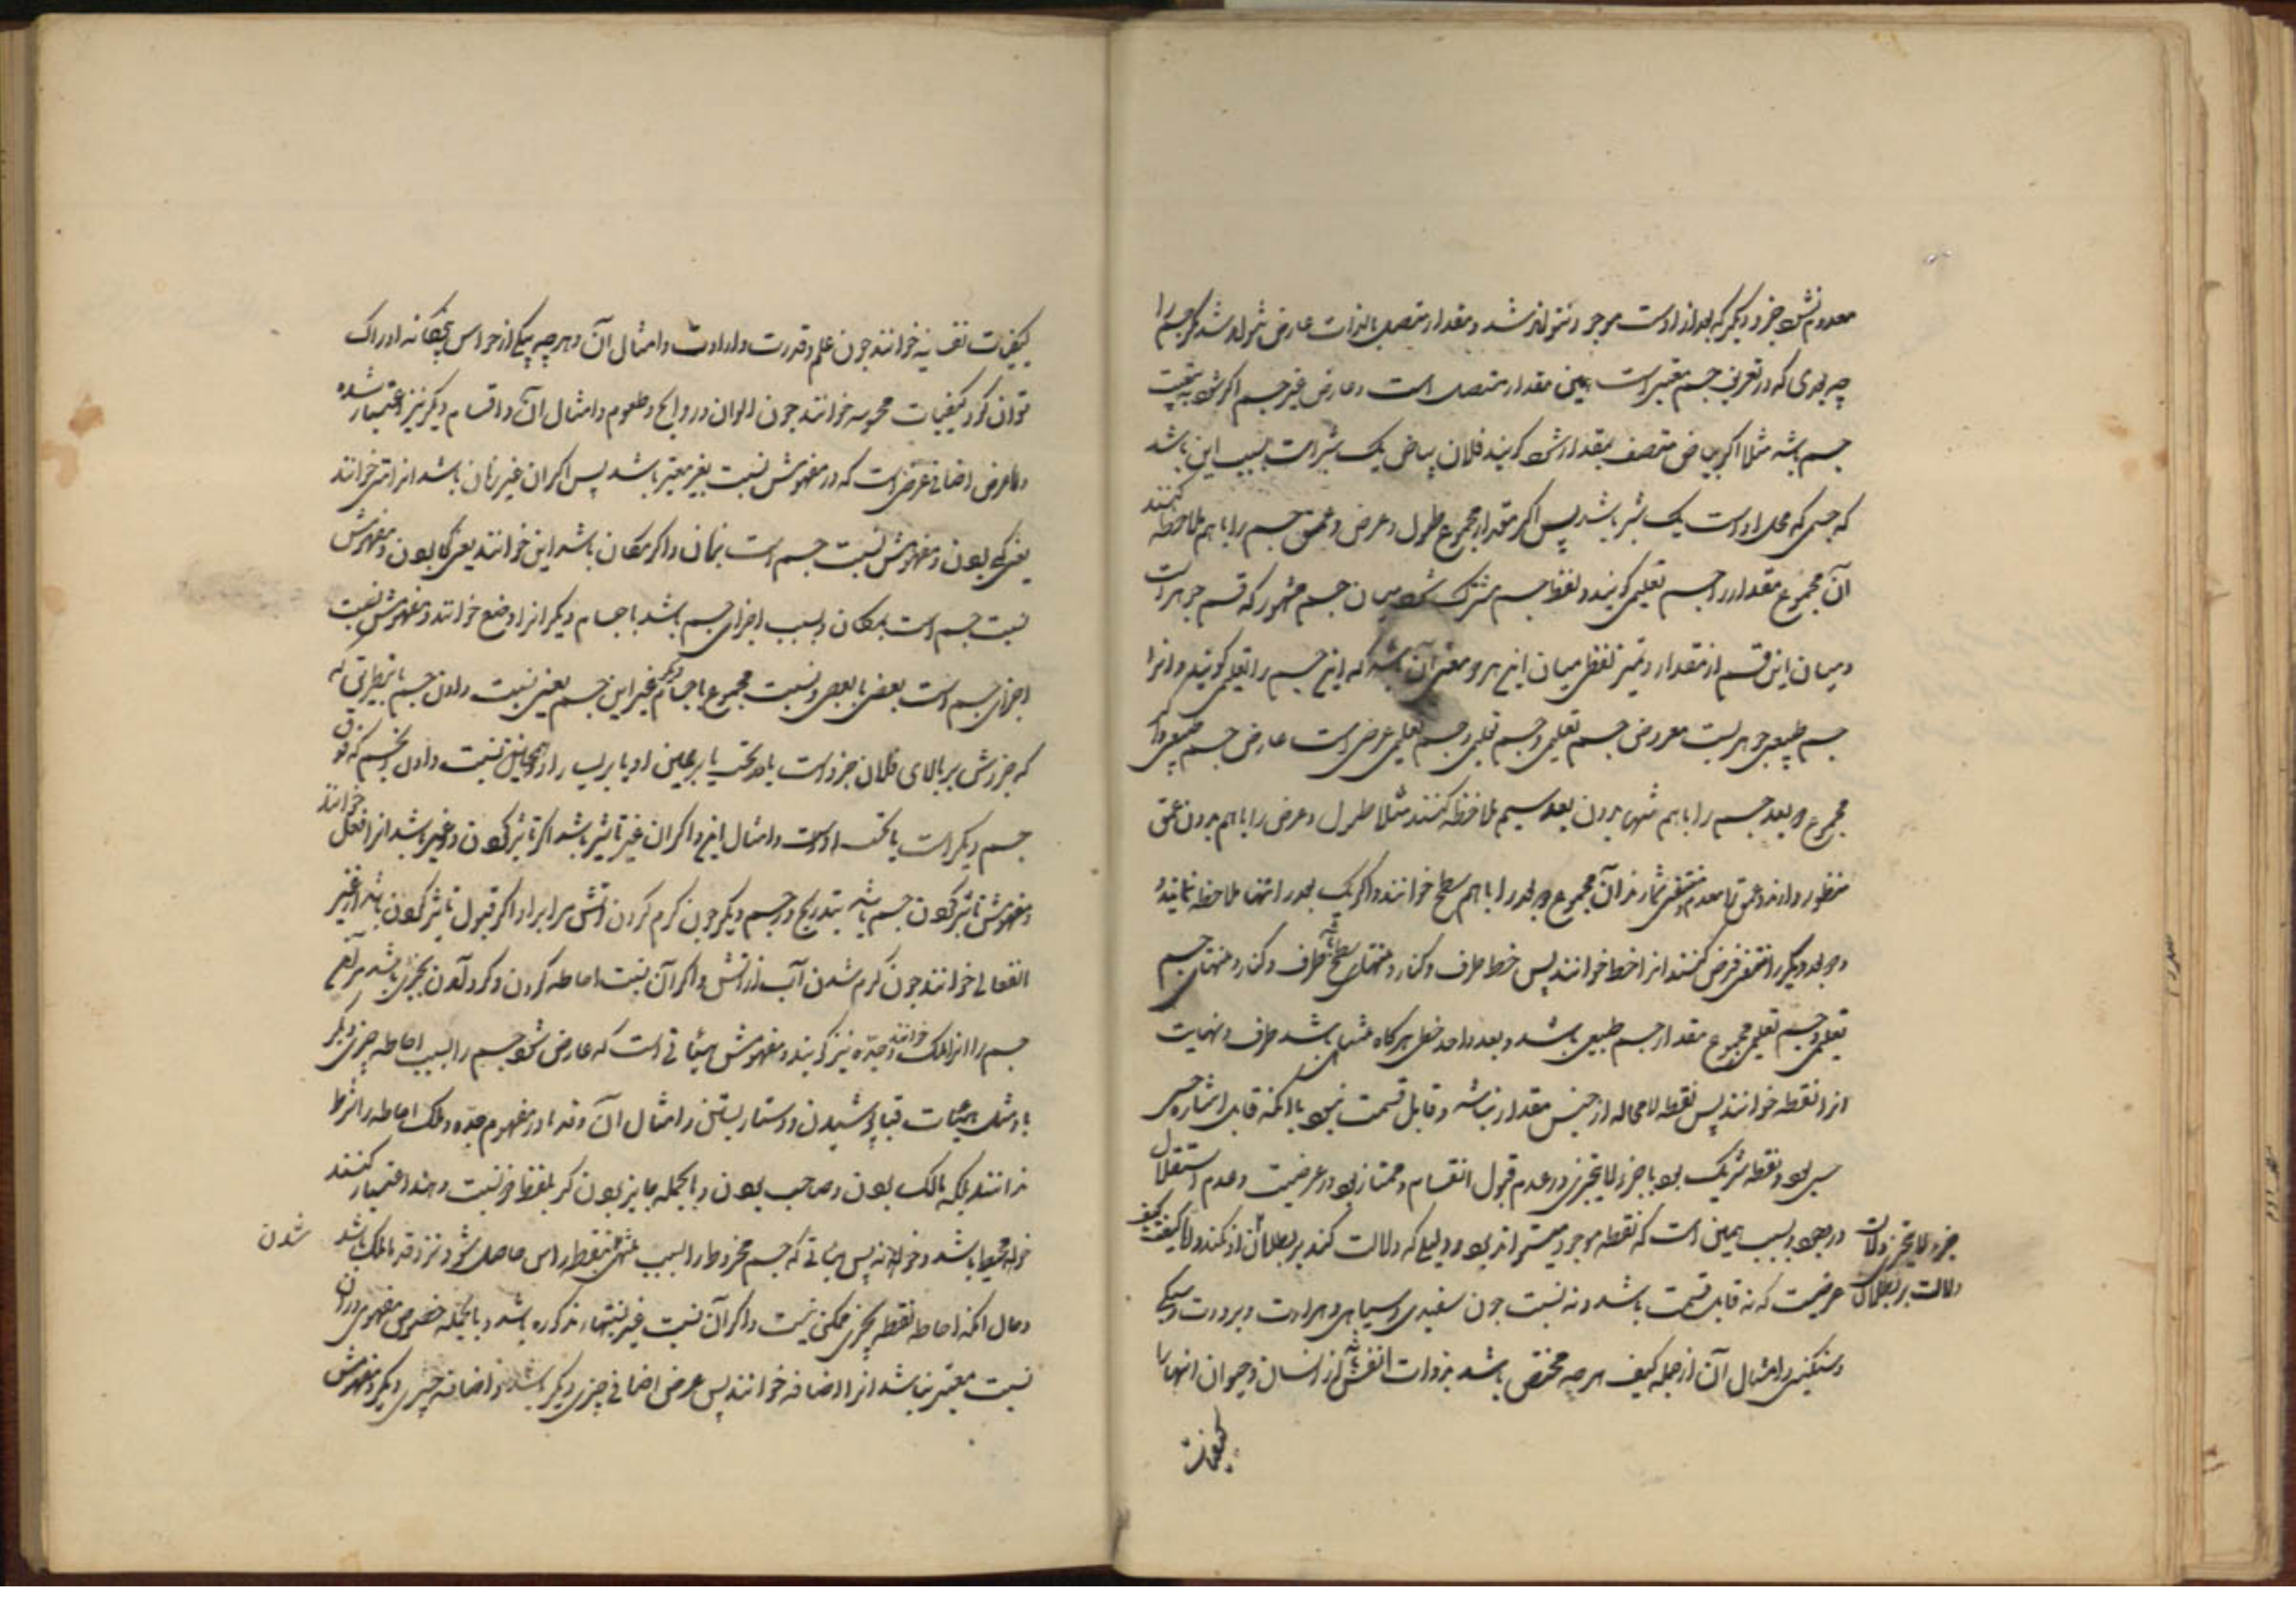 معدوم نشود جزو دیگر که بعد از اوست موجود نتواند شد و مقدار متصل بالذات عارض نتواند شد مگر جسم را
چه بعدی که در تعریف جسم معتبر است همین مقدار متصل است و عارض غیر جسم اگر شود به تبعیت
جسم باشد مثلا اگر بیاض متصف بمقدار شود گویند فلان بیاض یک شبر است بسبب این باشد
که جسمی که محل اوست یک شبر باشد پس اگر مقدار مجموع طول و عرض و عمق جسم را باهم ملاحظه کنند
آن مجموع مقدار را جسم تعلیمی گویند و لفظ جسم مشترک شود میان جسم مشهور که قسم جوهر است
و میان این قسم از مقدار و تمیز لفظی میان این هر دو معنی آن باشد که این جسم را تعلیمی گویند و انرا
جسم طبیعی جوهریست معروض جسم تعلیمی و جسم تعلیمی عرض است عارض جسم طبیعی و اگر
مجموع دو بعد جسم را باهم تنها بدون بعد سیم ملاحظه کنند مثلا طول و عرض را باهم بدون عمق
منظور دارند و عمق را معدوم و منتفی شمارند آن مجموع دو بعد را باهم سطح خوانند و اگر یک بعد را تنها ملاحظه نمایند
و دو بعد دیگر را منتفی فرض کنند انرا خط خوانند پس خط طرف و کنار و منتهای سطح باشد و سطح طرف و کنار و منتهای جسم
تعلیمی و جسم تعلیمی مجموع مقدار جسم طبیعی باشد و بعد واحد خطی هرگاه متناهی باشد طرف و نهایت
انرا نقطه خوانند پس نقطه لامحاله از جنس مقدار نباشد و قابل قسمت نبود با انکه قابل اشاره حسی
بود و نقطه شریک بود با جزو لایتجزی در عدم قبول انقسام و ممتاز بود در عرضیت و عدم استقلال
در وجود و بسبب همین است که نقطه موجود میتواند بود و دلیلی که دلالت کند بر بطلان جزو لایتجزی دلالت بر بطلان آن نکند و اما کیف
عرضیست که نه قابل قسمت باشد و نه نسبت چون سفیدی و سیاهی و حرارت و برودت و سبکی
و سنگینی و امثال آن از جمله کیف هرچه مختص باشد بذوات انفس از انسان و حیوان انها را
کیفیات
کیفیات نفسانیه خوانند چون علم و قدرت و ارادت و امثال آن و هرچه بیکی از حواس پنجگانه ادراک
توان کرد کیفیات محسوسه خوانند چون الوان و روایح و طعوم و امثال آن و اقسام دیگر نیز اعتبار شده
و اما عرض اضافی عرضی است که در مفهومش نسبت بغیر معتبر باشد پس اگر ان غیر زمان باشد انرا متی خوانند
یعنی کی بودن و مفهومش نسبت جسم است بزمان و اگر مکان باشد این خوانند یعنی کجا بودن و مفهومش
نسبت جسم است بمکان و بسبب اجزای جسم باشد با اجسام دیگر انرا وضع خوانند و مفهومش نسبت
اجزای جسم است بعضی با بعضی و نسبت مجموع با اجسام دیگر غیر این جسم یعنی نسبت دادن جسم باینطریق که
که جزوش بر بالای فلان جزو است یا در تحت یا بر یمین او یا بر یسار و همچنین نسبت دادن جسم که فوق
جسم دیگر است یا تحت اوست و امثال این و اگر ان غیر تاثیر باشد اگر تاثیر کردن در غیر باشد انرا فعل خوانند
و مفهومش تاثیر کردن جسم باشد بتدریج در جسم دیگر چون گرم کردن آتش مر آب را و اگر قبول تاثیر کردن باشد از غیر
انفعال خوانند چون گرم شدن آب از آتش و اگر آن نسبت احاطه کردن و گرد آمدن چیزی باشد بر
جسم را انرا ملک خوانند و جده نیز گویند و مفهومش هیئاتی است که عارض شود جسم را بسبب احاطه چیزی دیگر
باو مثل هیئات قبا پوشیدن و دستار بستن و امثال آن و قدما در مفهوم جده و ملک احاطه را شرط
ندانند بلکه مالک بودن و صاحب بودن و بالجمله حایز بودن که بلفظ ذو نسبت دهند اعتبار کنند
خواه محیط باشد و خواه نه پس هیئاتی که جسم مخروط را بسبب منتهی شدن بنقطه راس حاصل شود نزد قدما ملک باشد
و حال انکه احاطه نقطه بچیزی ممکن نیست و اگر آن نسبت غیر نسبتهای مذکوره باشد و بالجمله خصوص مفهومی در ان
نسبت معتبر نباشد انرا اضافه خوانند پس عرض اضافی چیزی دیگر باشد و اضافه چیزی دیگر و مفهومش